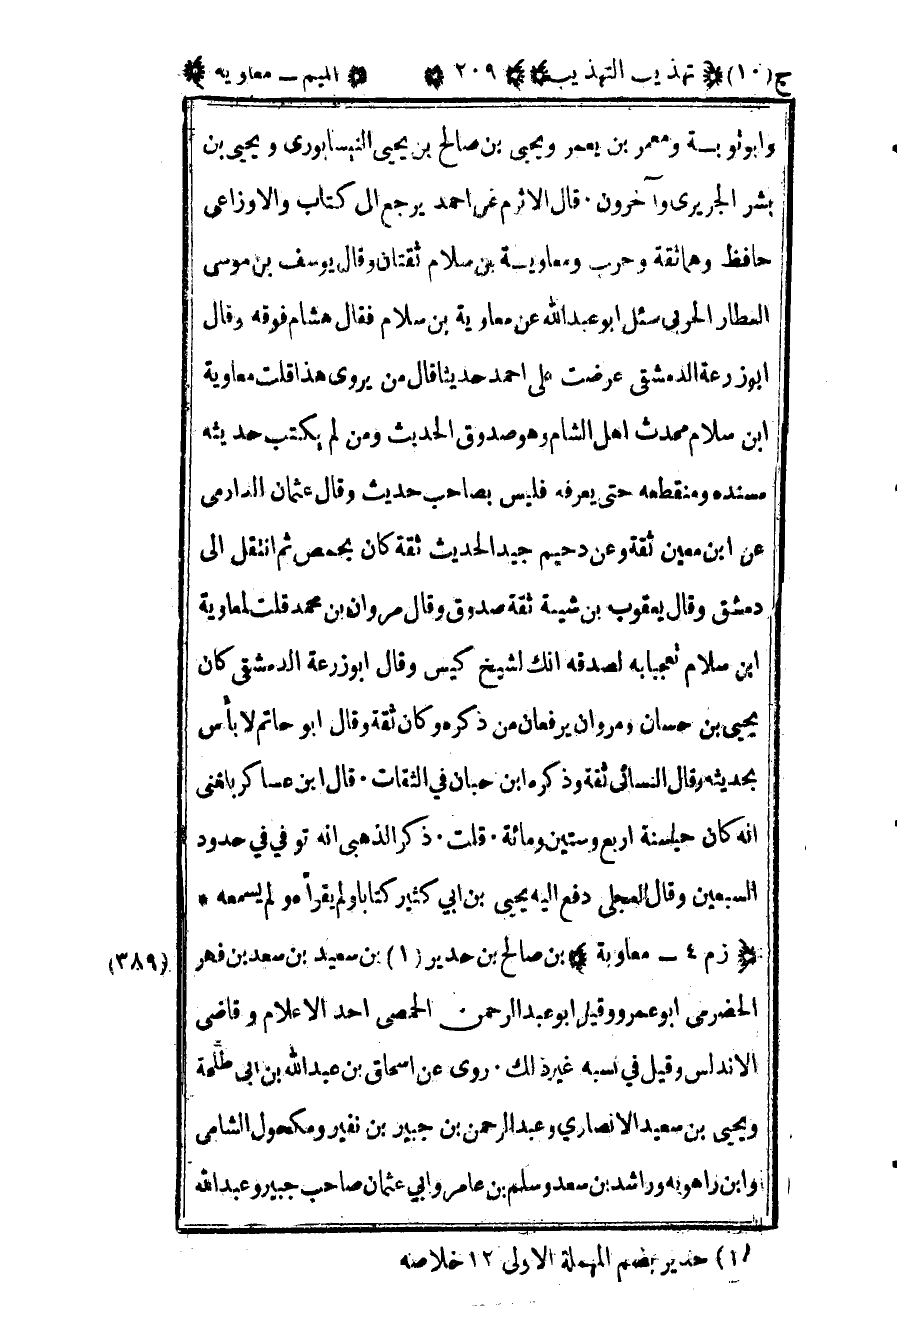 ج (١٠) تهذيب التهذيب ٢٠٩ الميم ــ معاويه
وابوتوبـــة ومعمر بن يعمر ويحيى بن صالح بن يحيى النيسابورى ويحيى بن
بشر الجريرى وآخرون ٠ قال الاثرم عن احمد يرجع ال كتاب والاوزاعى
حافظ وهماثقة وحرب ومعاويـــة بن سلام ثقتان وقال يوسف بن موسى
العطار الحربى سئل ابو عبدالله عن معاوية بن سلام فقال هشام فوقه وقال
ابوزرعة الدمشقى عرضت على احمد حديثا قال من يروى هذا قلت معاوية
ابن سلام محدث اهل الشام وهو صدوق الحديث ومن لم يكتب حديثه
مسنده ومنقطعه حتى يعرفه فليس بصاحب حديث وقال عثمان الدارمى
عن ابن معين ثقة وعن دحيم جيد الحديث ثقة كان بحمص ثم انتقل الى
دمشق وقال يعقوب بن شيبة ثقة صدوق وقال مروان بن محمد قلت لمعاوية
ابن سلام تعجبا به لصدقه انك لشيخ كيس وقال ابوزرعة الدمشقى كان
يحيى بن حسان ومروان يرفعان من ذكره وكان ثقة وقال ابو حاتم لا بأس
بحديثه وقال النسائى ثقة وذكره ابن حبان في الثقات ٠ قال ابن عساكر بلغنى
انه كان حيا سنة اربع وستين ومائة ٠ قلت ٠ ذكر الذهبى انه توفي في حدود
السبعين وقال العجلى دفع اليه يحيى بن ابي كثير كتابا ولم يقرأه و لم يسمعه *
زم ٤ ــ معاوية بن صالح بن حدير (١) بن سعيد بن سعد بن فهر
(٣٨٩)
الحضرمى ابو عمرو وقيل ابو عبد الرحمن الحمصى احد الاعلام و قاضى
الاندلس وقيل في نسبه غير ذلك ٠ روى عن اسحاق بن عبدالله بن ابى طلحة
ويحيى بن سعيد الانصاري وعبد الرحمن بن جبير بن نفير ومكحول الشامى
وابن راهويه وراشد بن سعد وسلم بن عامر وابي عثمان صاحب جبير وعبدالله
(١) حدير بضم المهملة الاولى ١٢ خلاصه